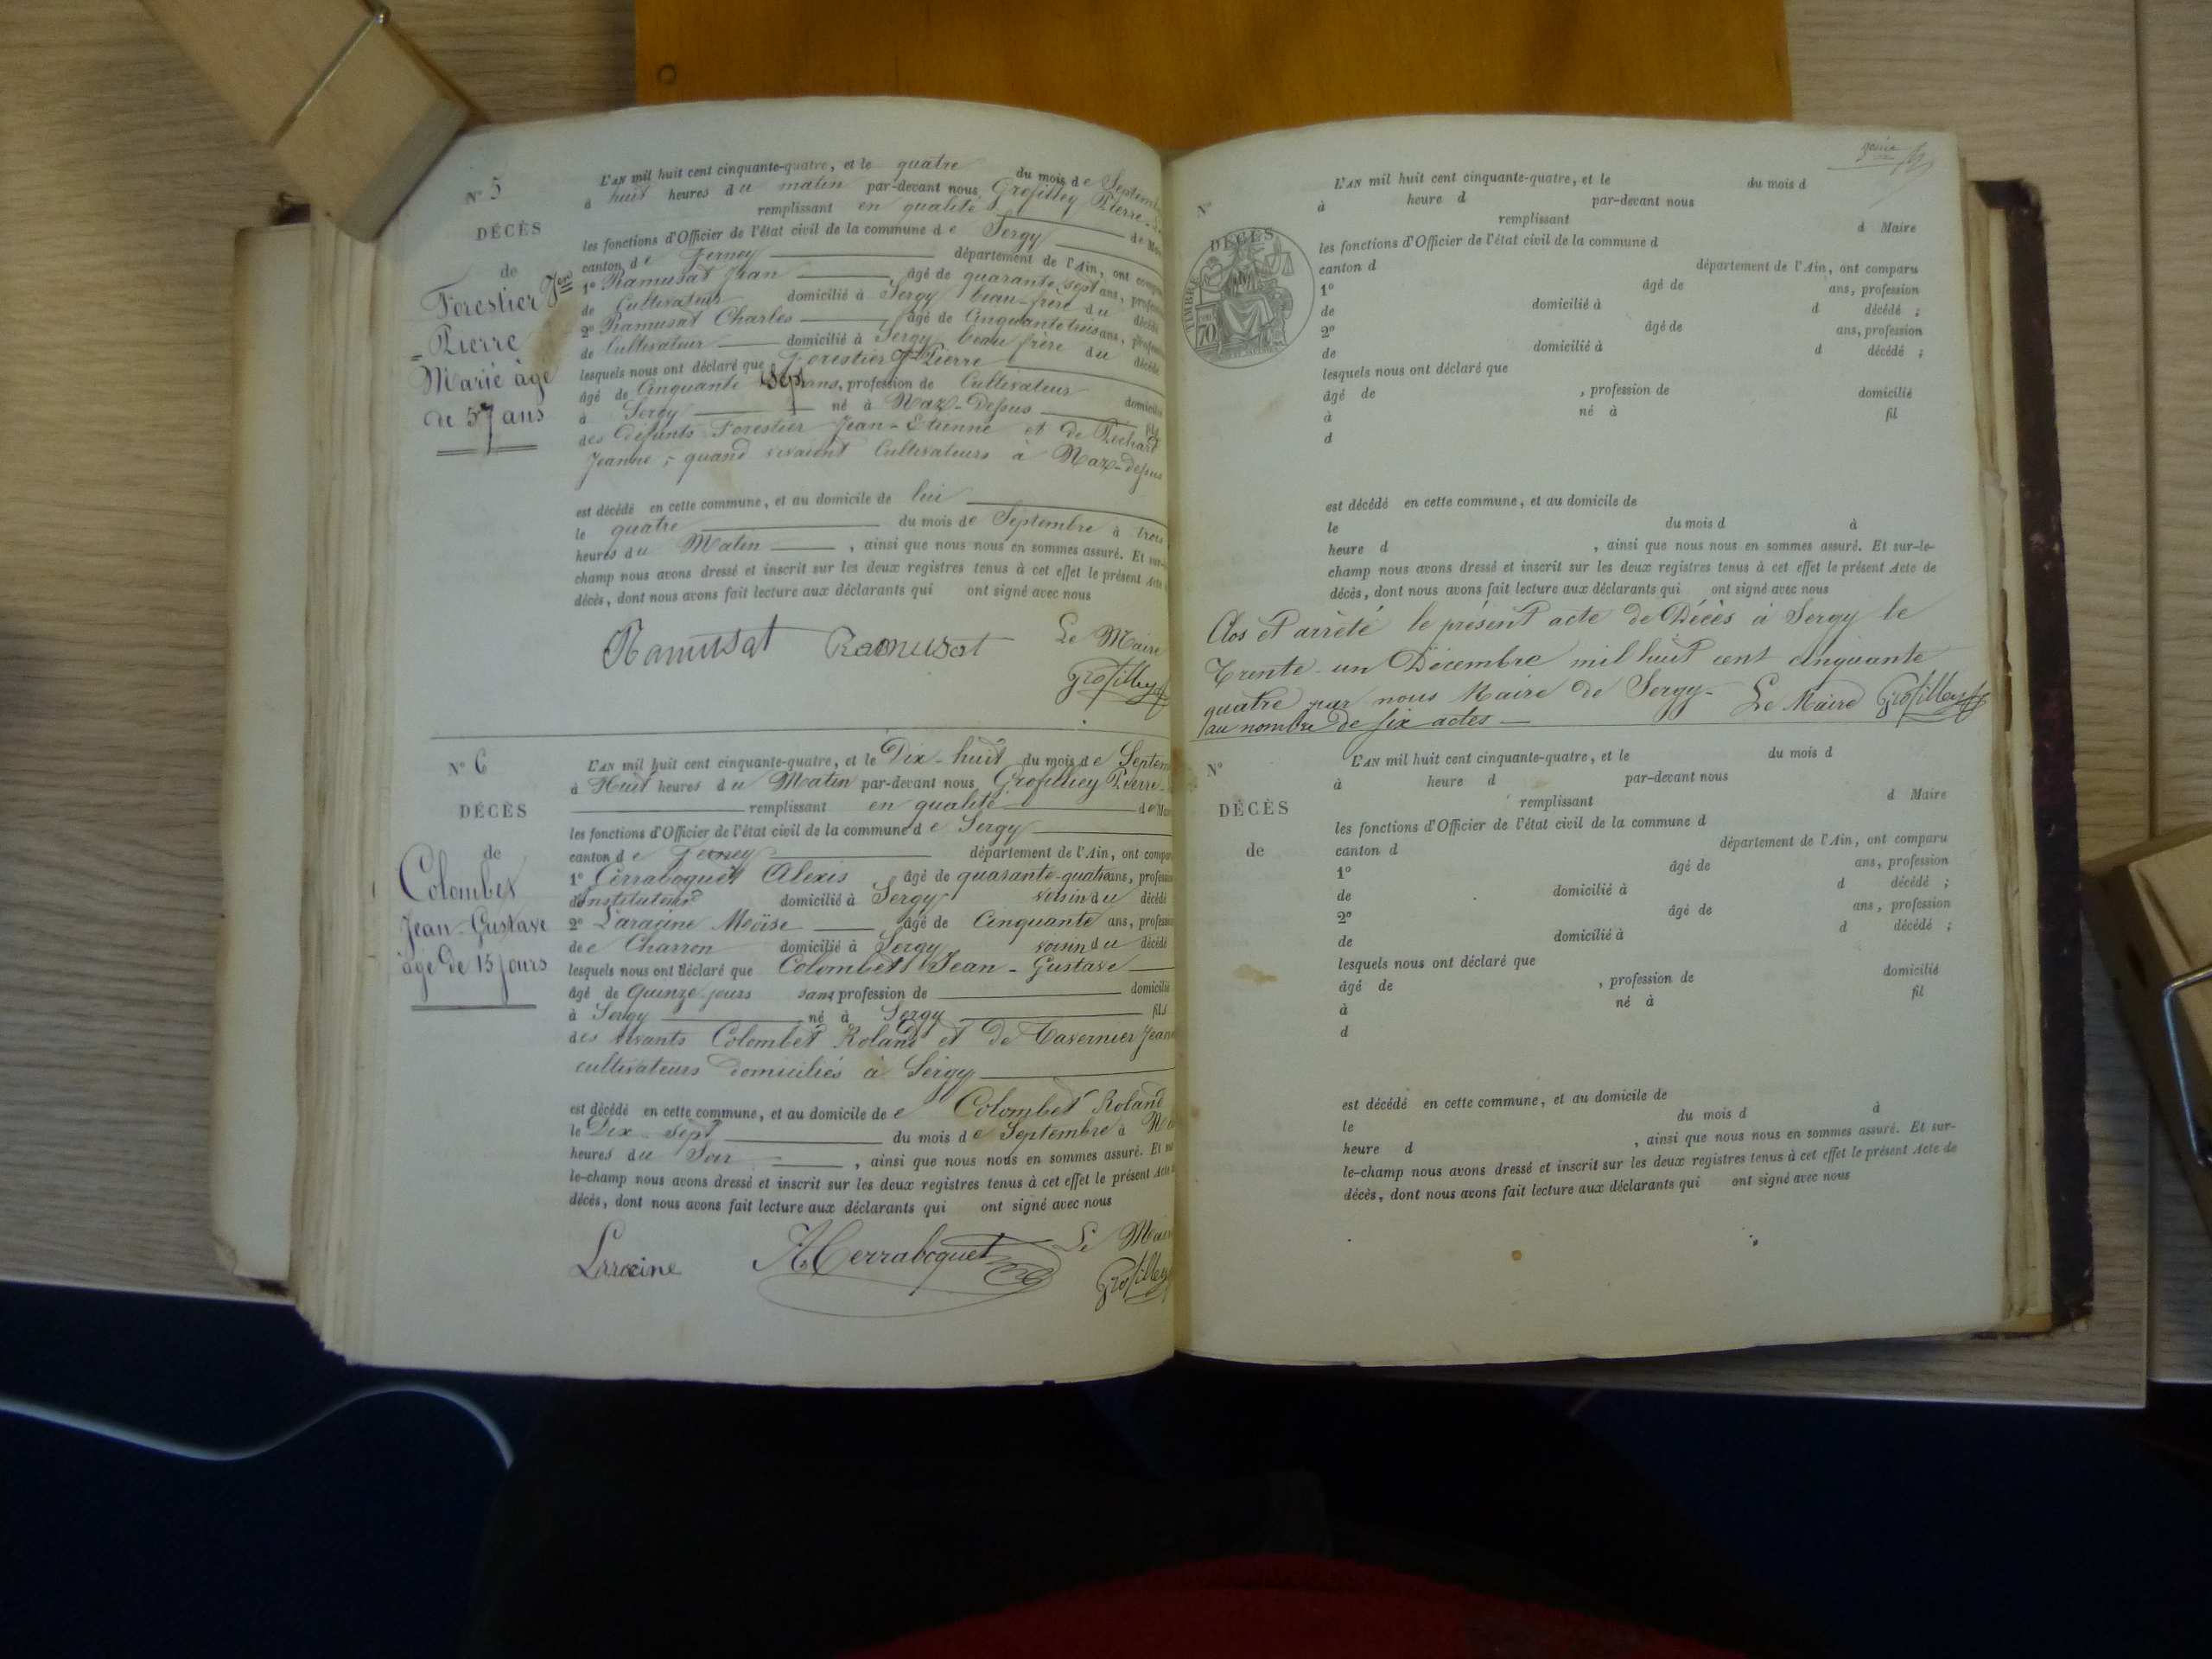 N° 5
DÉCÈS
de
Forestier Jn
Pierre
Marié âgé
de 57 ans
L'AN mil huit cent cinquante-quatre, et le quatre du mois de Septemb
à huit heures du matin par-devant nous Grosfilley Pierre
remplissant en qualité de
les fonctions d'Officier de l'état civil de la commune de Sergy
canton de Ferney département de l'Ain, ont compa
1° Ramusat Jean âgé de quarante sept ans, profes
de Cultivateur domicilié à Sergy beau-frère du décédé
2° Ramusat Charles âgé de Cinquante trois ans, profes
de Cultivateur domicilié à Sergy beau frère du décédé
lesquels nous ont déclaré que Forestier Jn Pierre
âgé de Cinquante Sept ans, profession de Cultivateur domicilié
à Sergy né à Naz-Dessus fils
des défunts Forestier Jean-Etienne et de
Jeanne, quand vivaient Cultivateurs à Naz-dessus
est décédé en cette commune, et au domicile de lui
le quatre du mois de Septembre à trois
heures du Matin, ainsi que nous nous en sommes assuré. Et sur-
champ nous avons dressé et inscrit sur les deux registres tenus à cet effet le présent Acte
décès, dont nous avons fait lecture aux déclarants qui ont signé avec nous
Ramusat Ramusat Le Maire
Grosfilley
N° 6
DÉCÈS
de
Colombet
Jean-Gustave
âgé de 15 jours
L'AN mil huit cent cinquante-quatre, et le Dix-huit du mois de Septem
à Huit heures du Matin par-devant nous Grosfilley Pierre
remplissant en qualité de
les fonctions d'Officier de l'état civil de la commune de Sergy
canton de Ferney département de l'Ain, ont compa
1° Cerraboquet Alexis âgé de quarante-quatre ans, profess
d'Instituteur domicilié à Sergy voisin du décédé
2° Laracine Moïse âgé de Cinquante ans, profess
de Charron domicilié à Sergy voisin du décédé
lesquels nous ont déclaré que Colombet Jean-Gustave
âgé de Quinze jours sans profession de domicilié
à Sergy né à Sergy fils
des vivants Colombet Roland et de Tavernier Jean
cultivateurs domiciliés à Sergy
est décédé en cette commune, et au domicile de Colombet Roland
le Dix-Sept du mois de Septembre à
heures du Soir, ainsi que nous nous en sommes assuré. Et
le-champ nous avons dressé et inscrit sur les deux registres tenus à cet effet le présent Acte
décès, dont nous avons fait lecture aux déclarants qui ont signé avec nous
Laracine A Cerraboquet Le Maire
Grosfilley
N°
DÉCÈS
TIMBRE
70
L'AN mil huit cent cinquante-quatre, et le du mois d
à heure d par-devant nous
remplissant d Maire
les fonctions d'Officier de l'état civil de la commune d
canton d département de l'Ain, ont comparu
1° âgé de ans, profession
de domicilié à d décédé ;
2° âgé de ans, profession
de domicilié à d décédé ;
lesquels nous ont déclaré que
âgé de , profession de domicilié
à né à fil
d
est décédé en cette commune, et au domicile de
le du mois d à
heure d , ainsi que nous nous en sommes assuré. Et sur-le-
champ nous avons dressé et inscrit sur les deux registres tenus à cet effet le présent Acte de
décès, dont nous avons fait lecture aux déclarants qui ont signé avec nous
Clos et arrêté le présent acte de Décès à Sergy le
Trente-un Décembre mil huit cent cinquante
quatre par nous Maire de Sergy- Le Maire Grosfilley
au nombre de six actes
N°
DÉCÈS
de
L'AN mil huit cent cinquante-quatre, et le du mois d
à heure d par-devant nous
remplissant d Maire
les fonctions d'Officier de l'état civil de la commune d
canton d département de l'Ain, ont comparu
1° âgé de ans, profession
de domicilié à d décédé ;
2° âgé de ans, profession
de domicilié à d décédé ;
lesquels nous ont déclaré que
âgé de , profession de domicilié
à né à fil
d
est décédé en cette commune, et au domicile de
le du mois d à
heure d , ainsi que nous nous en sommes assuré. Et sur-
le-champ nous avons dressé et inscrit sur les deux registres tenus à cet effet le présent Acte de
décès, dont nous avons fait lecture aux déclarants qui ont signé avec nous